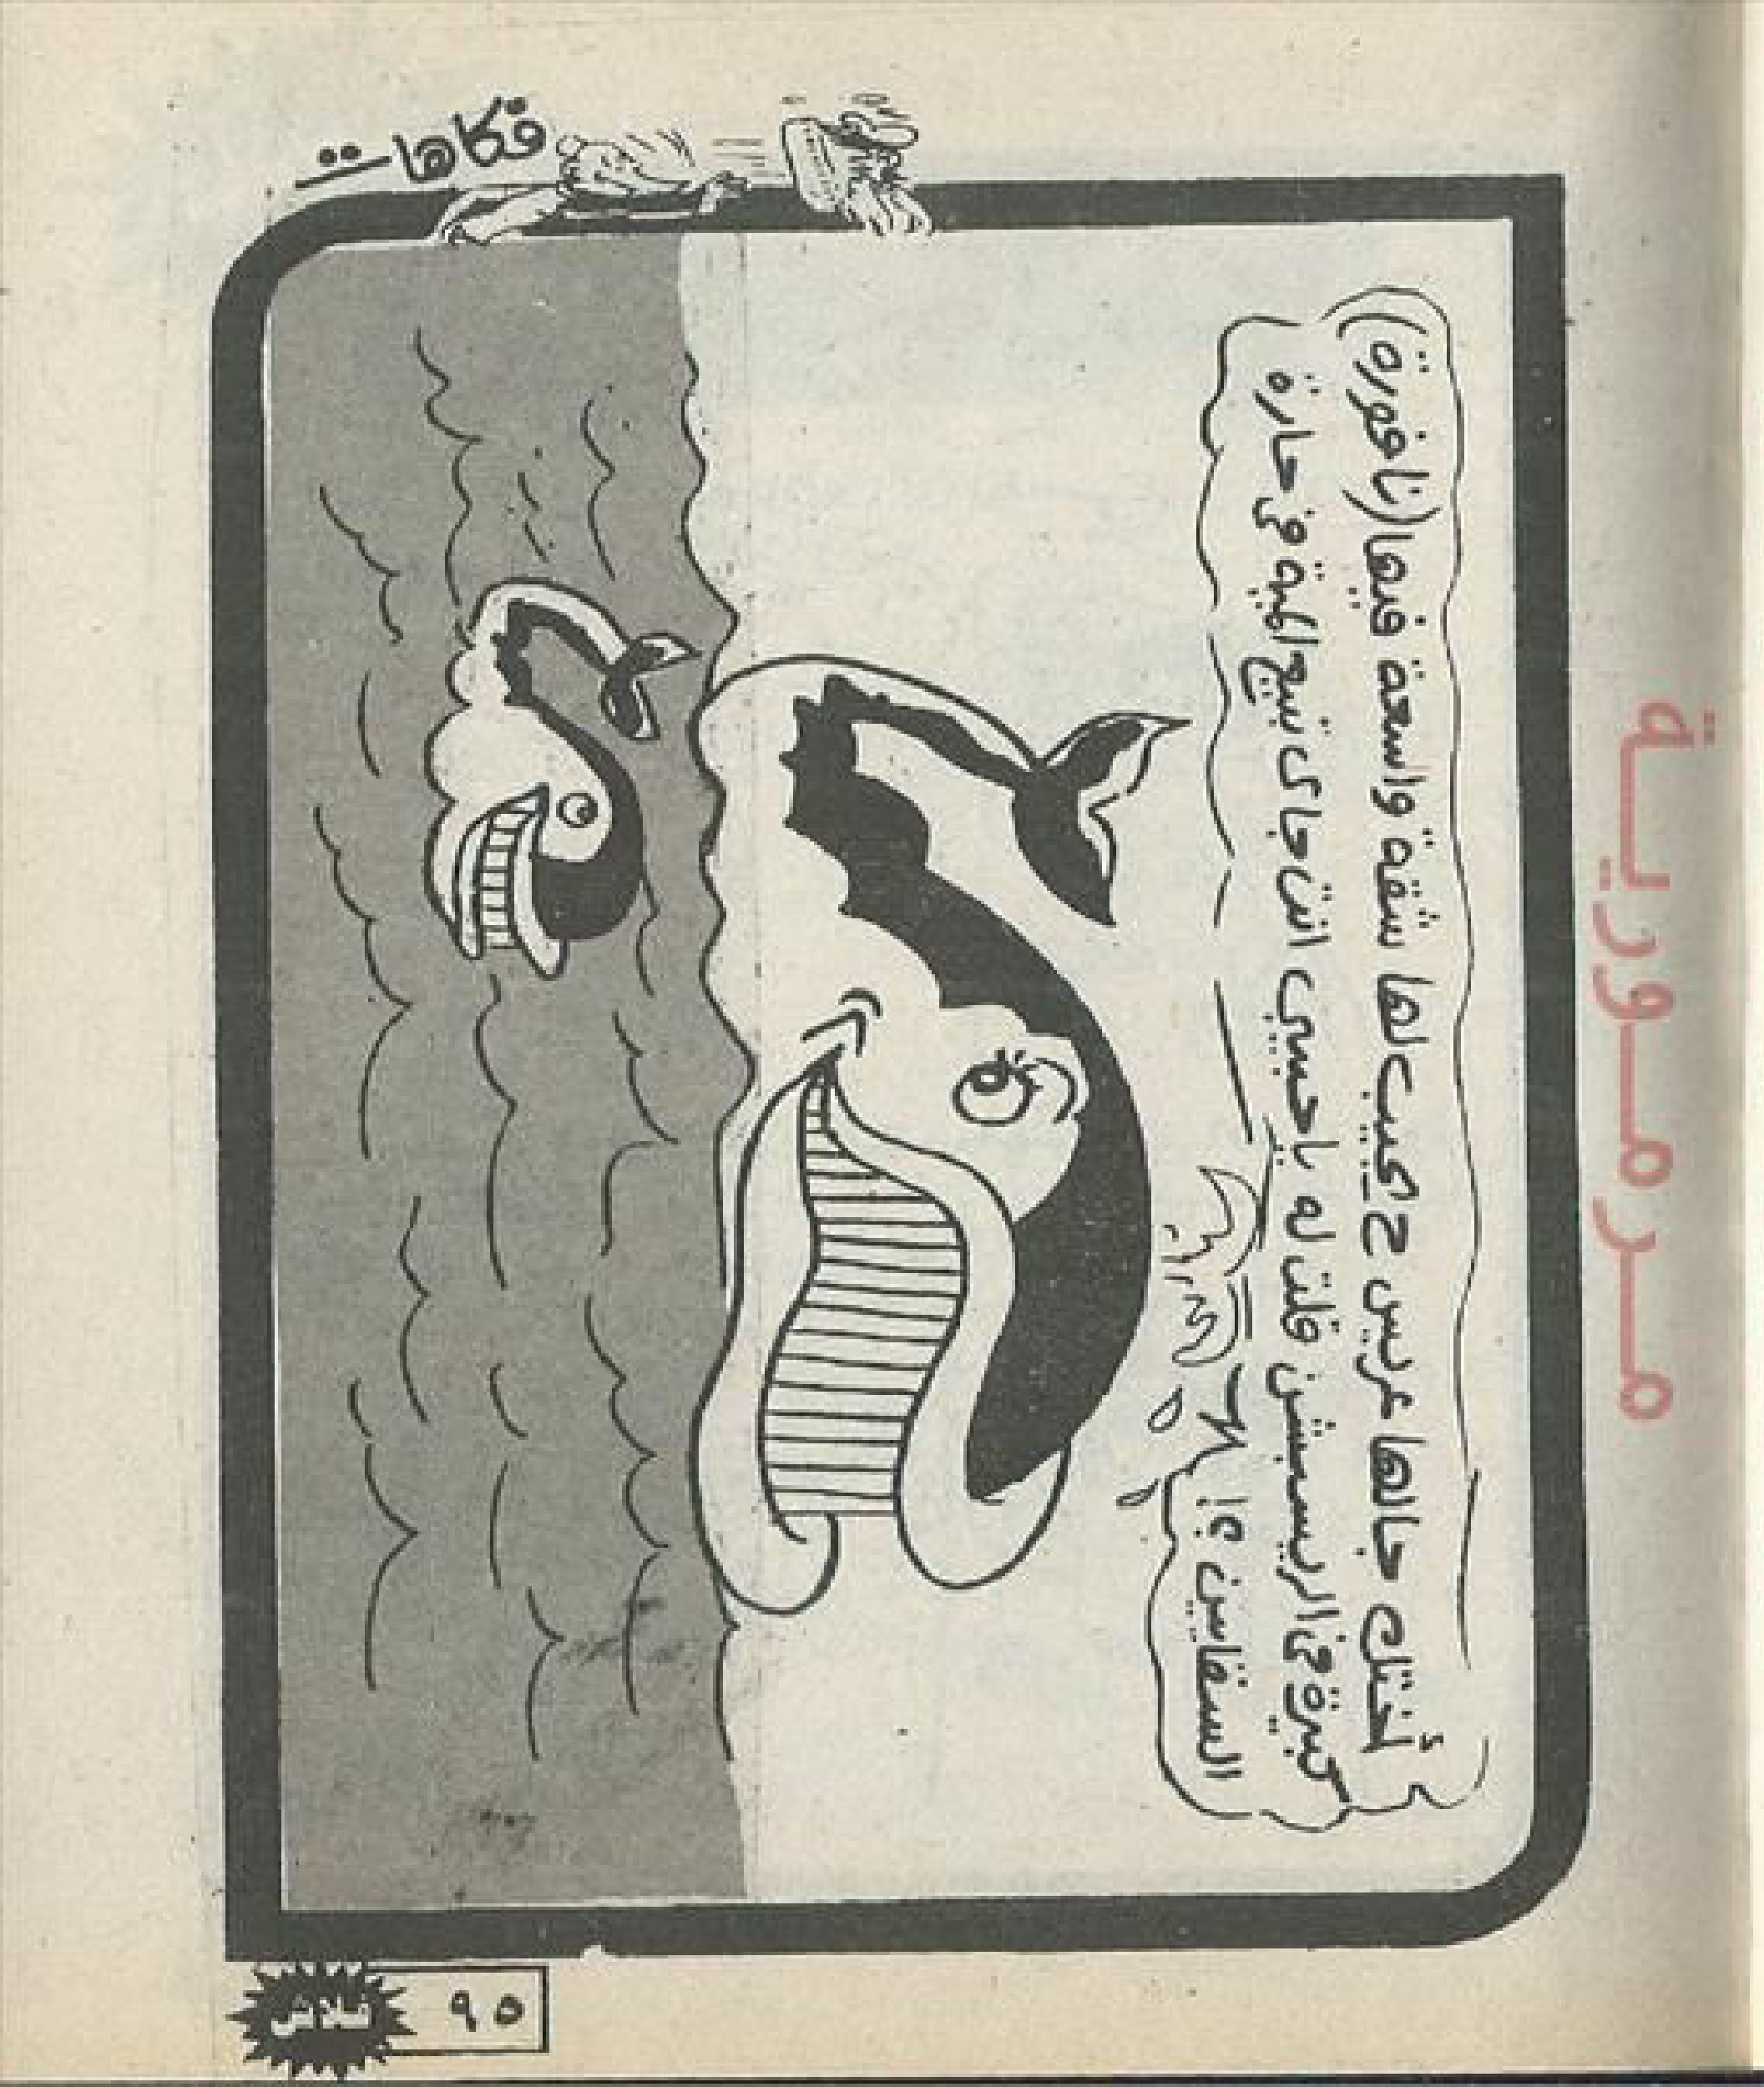 فكاهات
أختك جالها عريس ح يجيب لها شقة واسعة فيها (نافورة)
كبيرة فى الريسبشن قلت له يا حبيبى انت جاى تبيع المية فى حارة
السقايين ؟!
مرمورية
٩٥
فلاش